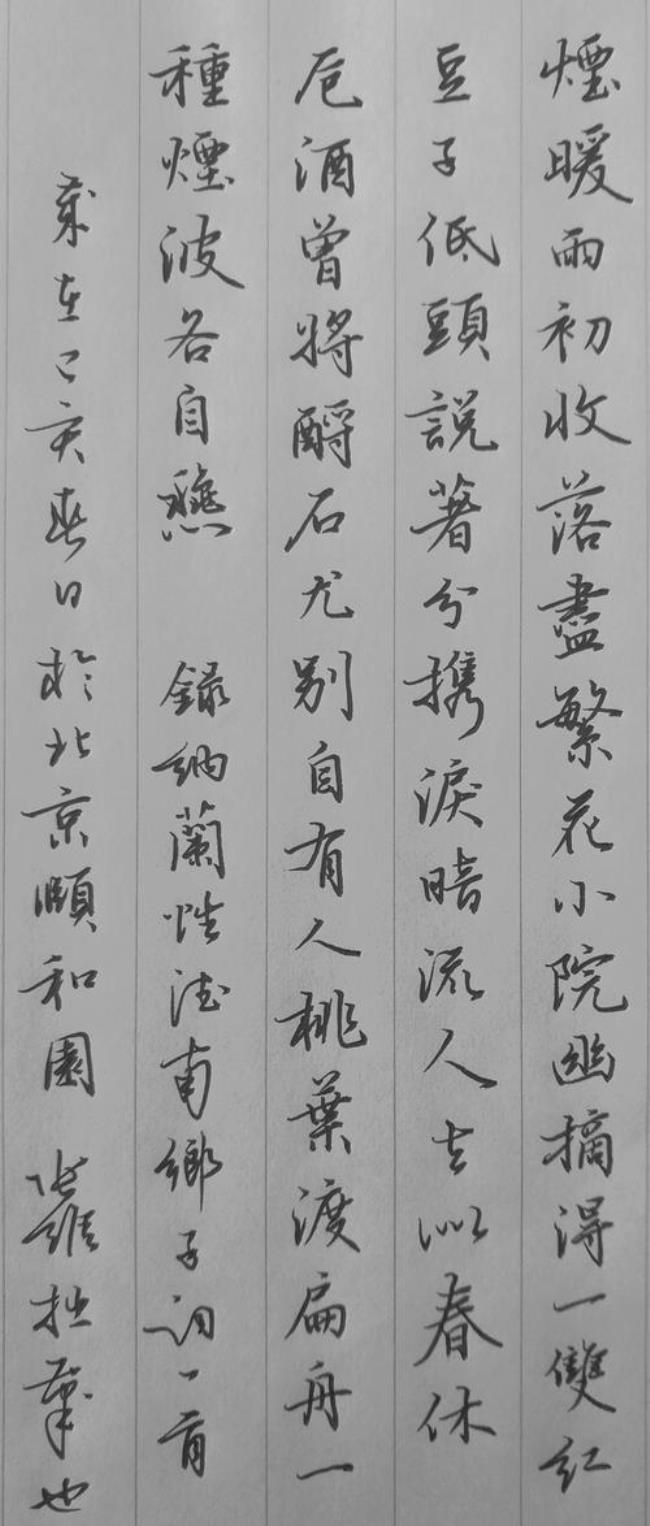 煙暖雨初收落盡繁花小院幽摘得一雙紅
豆子低頭說著分攜淚暗流人去似春休
卮酒曾將酹石尤別自有人桃葉渡扁舟一
種煙波各自愁 録納蘭性德南鄉子詞一首
歲在己亥春日於北京頤和園 拙筆也